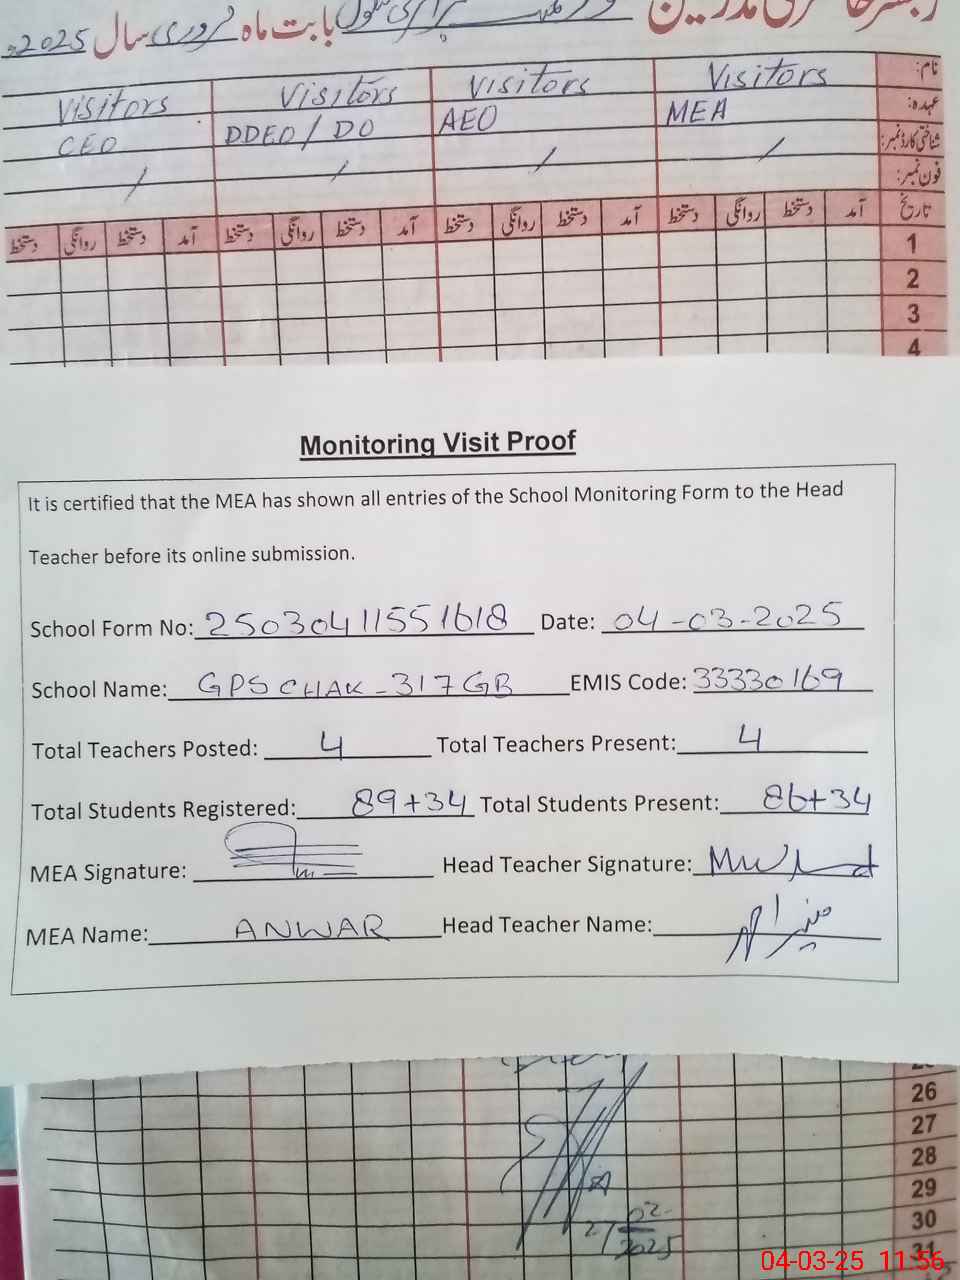 رجسٹر حاضری مدرسین بابت ماہ فروری سال 2025ء
نام: Visitors Visitors Visitors Visitors
عہدہ: MEA AEO DDEO/DO CEO
شناختی کارڈ نمبر: / / / /
فون نمبر:
تاریخ آمد دستخط روانگی دستخط آمد دستخط روانگی دستخط آمد دستخط روانگی دستخط آمد دستخط روانگی دستخط
1
2
3
4
Monitoring Visit Proof
It is certified that the MEA has shown all entries of the School Monitoring Form to the Head
Teacher before its online submission.
School Form No: 25030411551618 Date: 04-03-2025
School Name: GPS CHAK-317 GB EMIS Code: 33330169
Total Teachers Posted: 4 Total Teachers Present: 4
Total Students Registered: 89+34 Total Students Present: 86+34
MEA Signature: Head Teacher Signature:
MEA Name: ANWAR Head Teacher Name:
26
27
28
29
30
31
27/02/2025
04-03-25 11:56